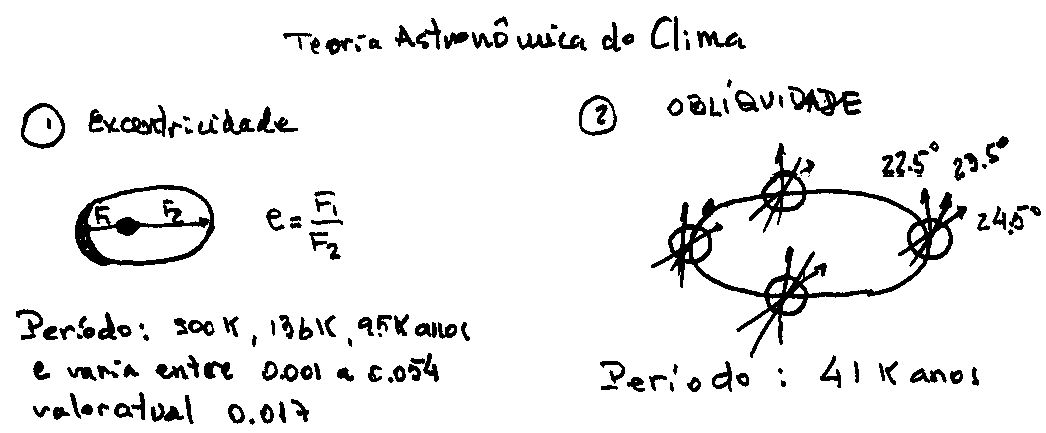 Teoria Astronômica do Clima
① Excentricidade
F1 F2
e = F1/F2
Período: 300K, 136K, 95K anos
e varia entre 0.001 a 0.054
valor atual 0.017
② OBLÍQUIDADE
22.5° 23.5°
24.5°
Período: 41K anos